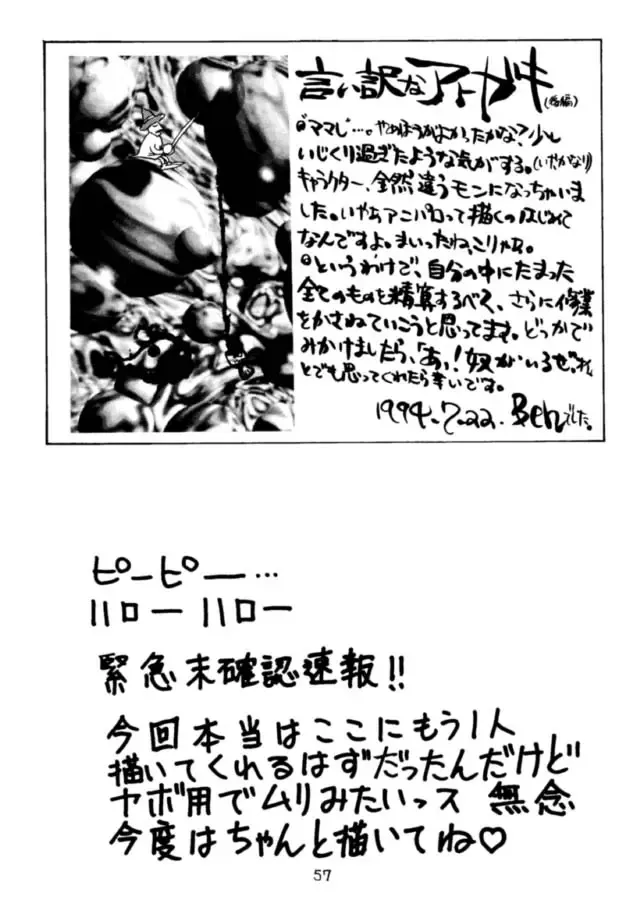 言い訳なアトガキ(後編)
◎"ママレ"…。やめたほうがよかったかな?少し
いじくり過ぎたような気がする。(いやかなり)
キャラクター、全然違うモンになっちゃいま
した。いやぁアニパロって描くのはじめて
なんですよ。まいったね、こりゃぁ。
◎というわけで、自分の中にたまった
全てのものを精算するべく、さらに修業
をかさねていこうと思ってます。どっかで
みかけましたら、「あ、!奴がいるぜ。」
とでも思ってくれたら幸いです。
1994.7.22. Benでした。
ピーピー…
ハロー ハロー
緊急末確認速報!!
今回本当はここにもう1人
描いてくれるはずだったんだけど
ヤボ用でムリみたいっス 無念
今度はちゃんと描いてね♡
57